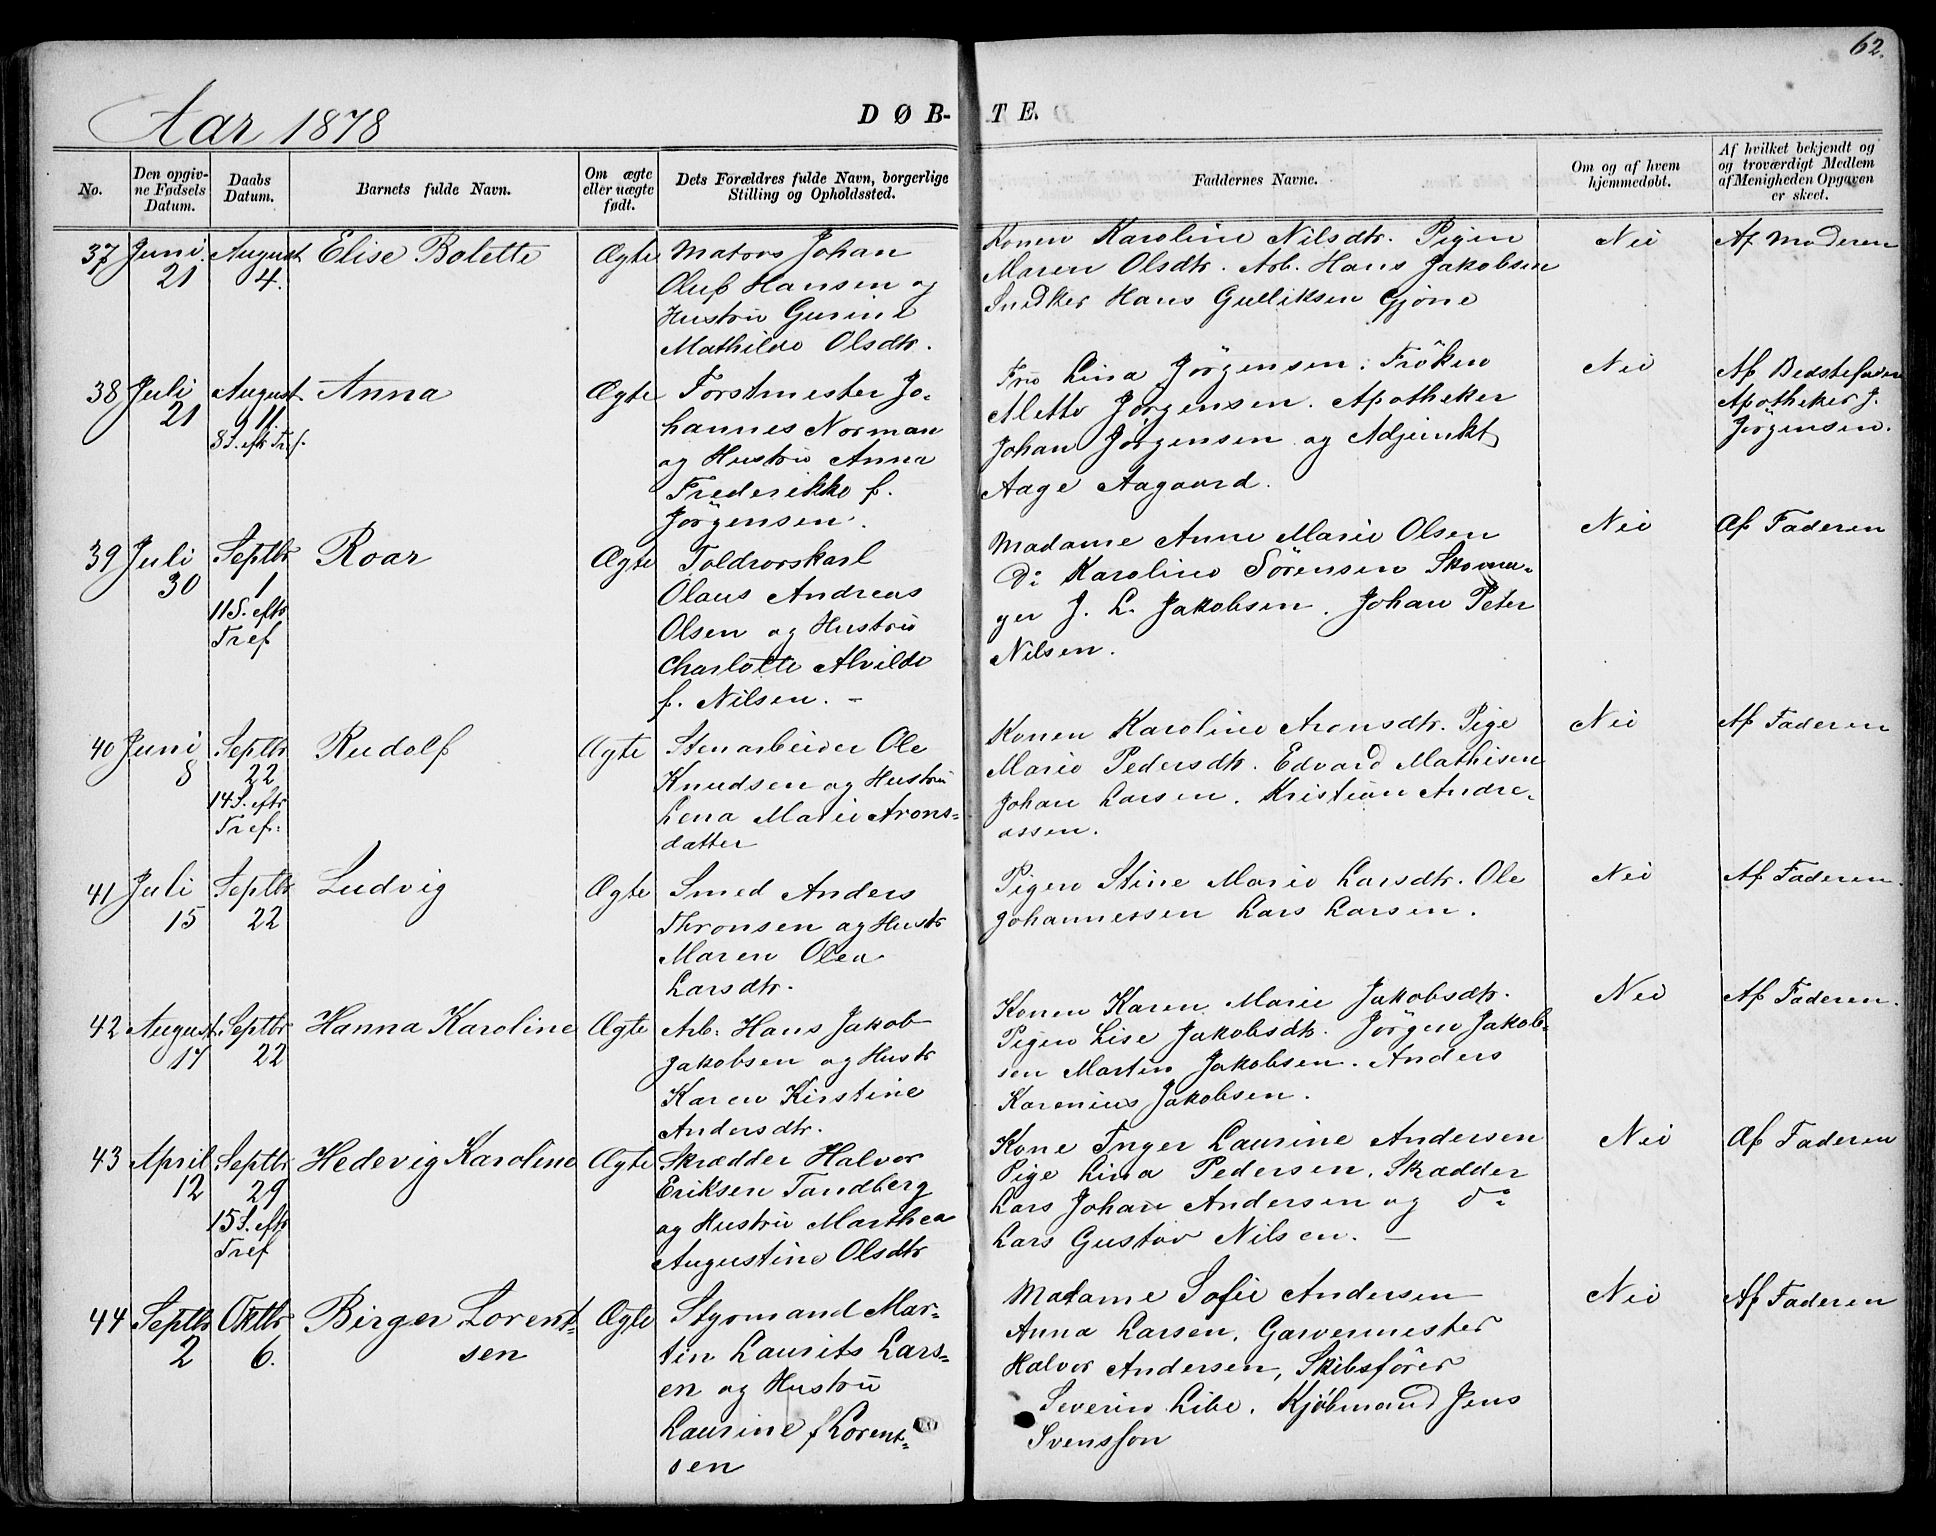 62.
Aar 1878
DØB-TE.
No.
Den opgiv-
ne Fødsels
Datum.
Daabs
Datum.
Barnets fulde Navn.
Om ægte
eller uægte
født.
Dets Forældres fulde Navn, borgerlige
Stilling og Opholdssted.
Faddernes Navne.
Om og af hvem
hjemmedøbt.
Af hvilket bekjendt og
og troværdigt Medlem
af Menigheden Opgaven
er skeet.
37 Juni
21
August
4.
Elise Bolette
Ægte
Matros Johan
Oluf Hansen og
Hustru Gurine
Mathilde Olsdtr.
Konen Karoline Nilsdtr. Pigen
Maren Olsdtr. Arb. Hans Jakobsen
Snedker Hans Gulliksen Gjöne
Nei
Af Moderen
38 Juli
21
August
11
8 S. eftr Tref.
Anna
Ægte
Forstmester Jo-
hannes Norman
og Hustru Anna
Frederikke f.
Jörgensen.
Fru Lina Jörgensen. Fröken
Mette Jörgensen. Apotheker
Johan Jörgensen og Adjunkt
Aage Aagaard.
Nei
Af Bedstefaderen
Apotheker J.
Jörgensen.
39 Juli
30
Septbr
1
11 S. eftr
Tref
Roar
Ægte
Toldrorskarl
Olaus Andreas
Olsen og Hustru
Charlotte Alvilde
f. Nilsen. –
Madame Anne Marie Olsen
do Karoline Sörensen Skoma-
ger J. L. Jakobsen. Johan Peter
Nilsen.
Nei
Af Faderen
40 Juni
8
Septbr
22
14 S. eftr
Tref.
Rudolf
Ægte
Stenarbeider Ole
Knudsen og Hustru
Lena Marie Arons-
datter
Konen Karoline Aronsdtr. Pige
Marie Pedersdtr. Edvard Mathisen
Johan Larsen. Kristian Andre-
assen.
Nei
Af Faderen
41 Juli
15
Septbr
22
Ludvig
Ægte
Smed Anders
Thronsen og Hustr
Maren Olea
Larsdtr.
Pigen Stine Marie Larsdtr. Ole
Johannessen Lars Larsen.
Nei
Af Faderen.
42 August
17
Septbr
22
Hanna Karoline
Ægte
Arb. Hans Jakob
Jakobsen og Hustr
Karen Kirstine
Andersdtr.
Konen Karen Marie Jakobsdtr.
Pigen Lise Jakobsdtr. Jörgen Jakob-
sen Martin Jakobsen. Anders
Karenius Jakobsen.
Nei
Af Faderen.
43 April
12
Septbr
29
15 S. eftr
Tref
Hedevig Karoline
Ægte
Skrædder Halvor
Eriksen Tandberg
og Hustru Marthea
Augustine Olsdtr
Kone Inger Laurine Andersen
Pige Lina Pedersen. Skrædder
Lars Johan Andersen og do
Lars Gustav Nilsen. –
Nei
Af Faderen
44 Septbr
2
Oktbr
6.
Birger Lorent-
sen
Ægte
Styrmand Mar-
tin Laurits Lars-
en og Hustru
Laurine f Lorent-
sen
Madame Sofie Andersen
Anna Larsen. Garvermester
Halvor Andersen, Skibsförer
Severin Libe. Kjöbmand Jens
Svensson
Nei
Af Faderen